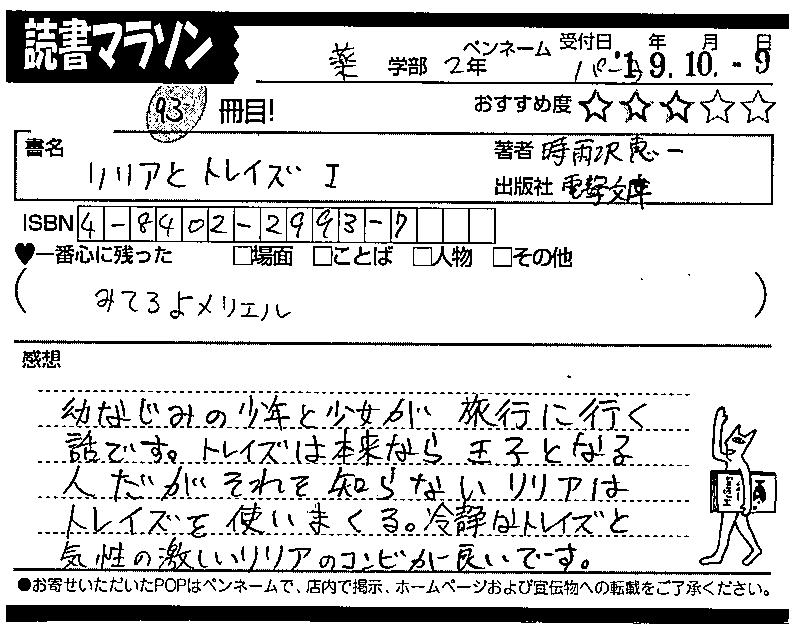 読書マラソン
薬 学部 2年 ペンネーム 受付日 年 月 日
'19.10.-9
93 冊目! おすすめ度 ☆☆☆☆☆
書名 リリアとトレイズ I
著者 時雨沢恵一
出版社 電撃文庫
ISBN 4-8402-2993-7
♥一番心に残った □場面 □ことば □人物 □その他
(みてろよメリエル)
感想
幼なじみの少年と少女が 旅行に行く
話です。トレイズは本来なら王子となる
人だがそれを知らないリリアは
トレイズを使いまくる。冷静なトレイズと
気性の激しいリリアのコンビが良いです。
●お寄せいただいたPOPはペンネームで、店内で掲示、ホームページおよび宣伝物への転載をご了承ください。